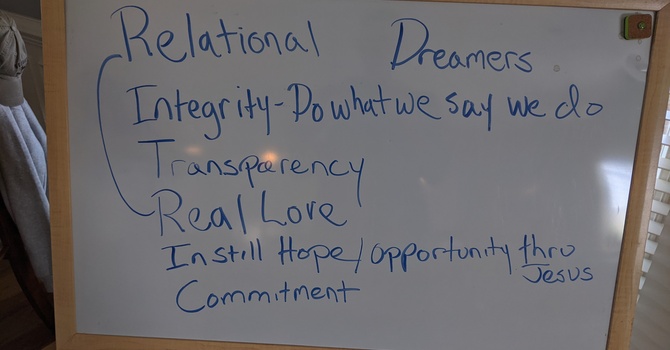 Relational Dreamers
Integrity - Do what we say we do
Transparency
Real Love
Instill Hope/opportunity thru
Jesus
Commitment